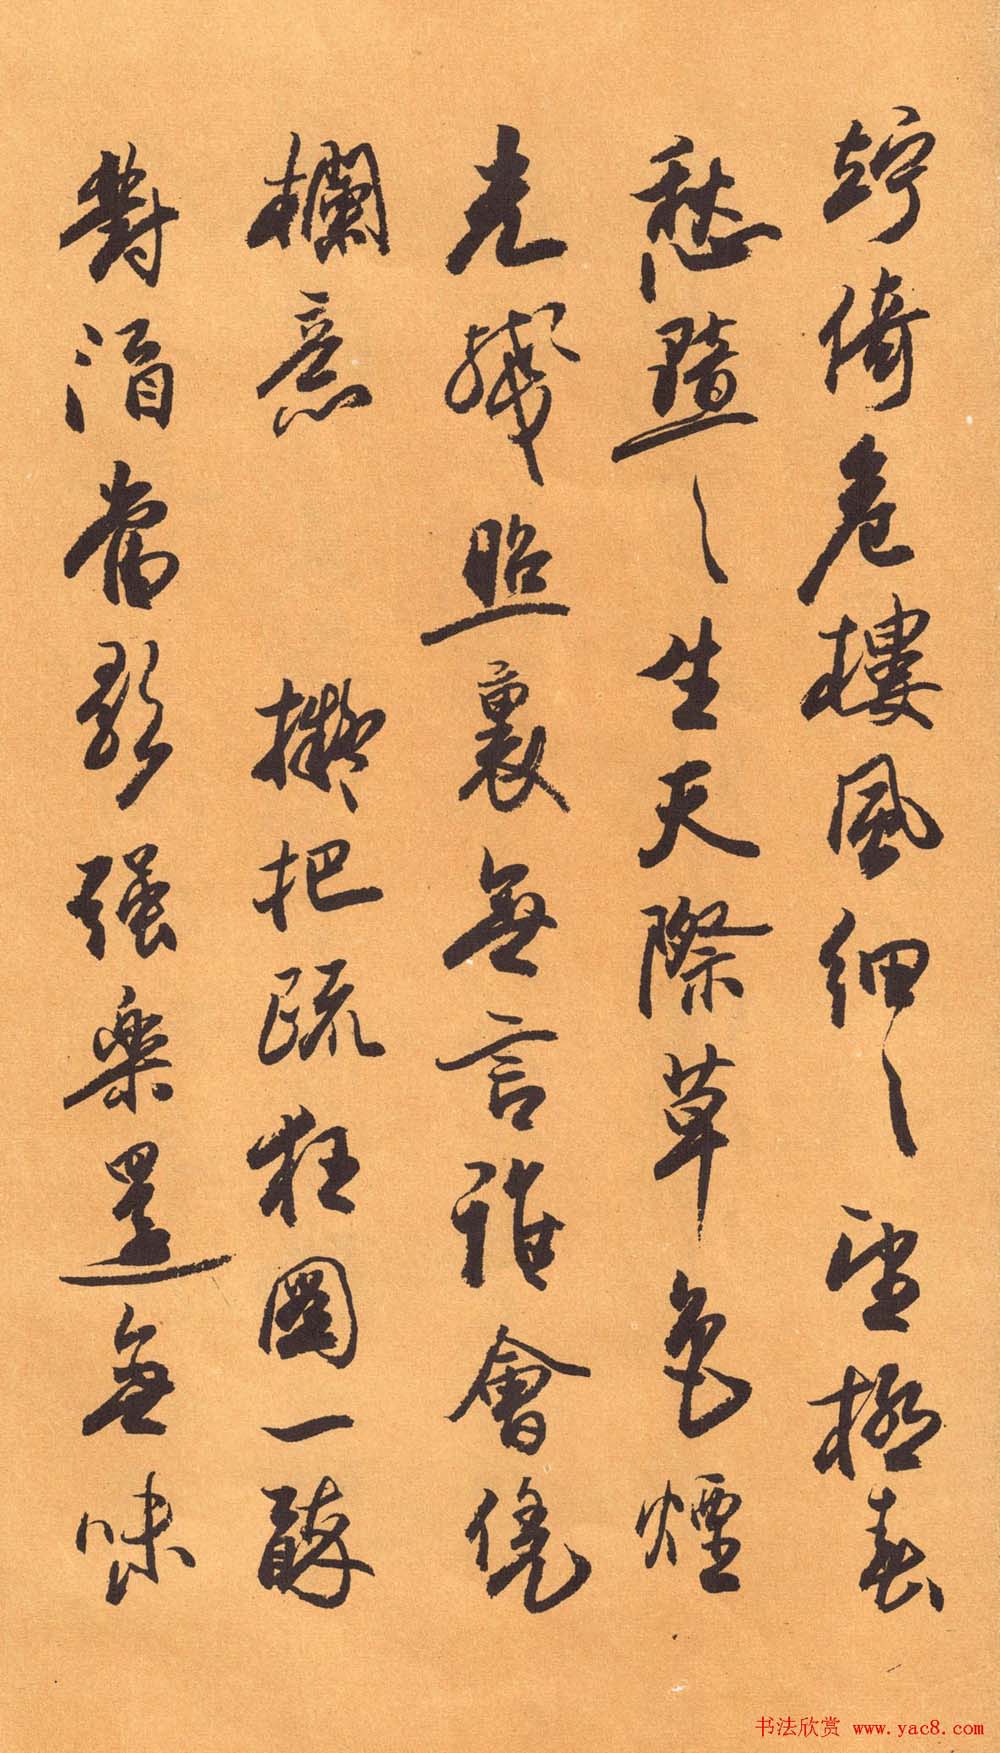 竚倚危樓風細〻望極春
愁黯〻生天際草色煙
光殘照裏無言誰會凭
欄意　擬把疏狂圖一醉
對酒當歌强樂還無味
书法欣赏 www.yac8.com